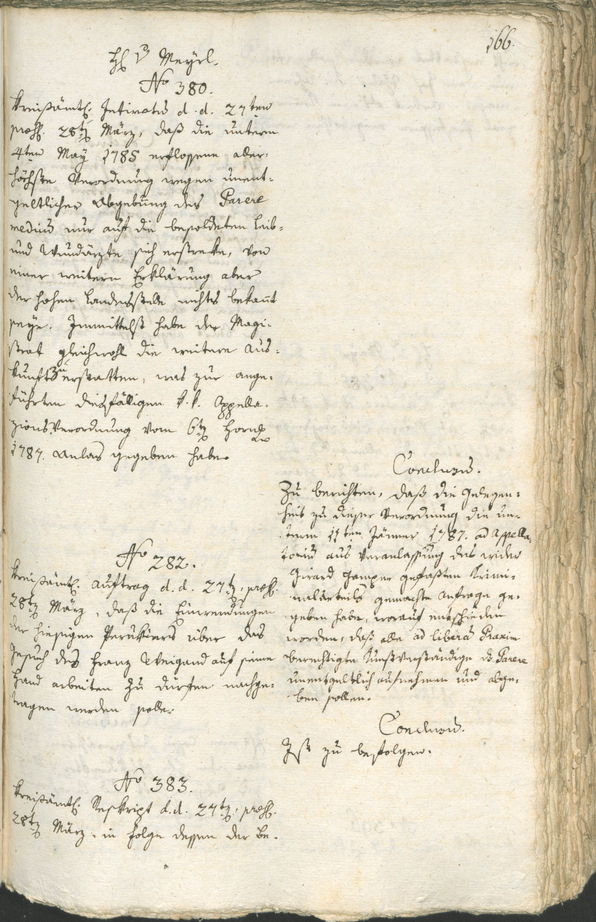 166.
H v Meyrl.
No 380.
Kreisämtl. Intimatum d. d. 27ten
präs. 28tz März, daß die unterm
4ten May 1785 erflossene aller-
höchste Verordnung wegen unent-
geltlicher Abgebung des Parere
medicum nur auf die besoldeten Leib-
und Wundärzte sich erstrecke, von
einer weitern Erklärung aber
der hohen Landesstelle nichts bekant
seye. Inmittelst habe der Magi-
strat gleichwohl die weitere Aus-
kunft zu erstatten, was zur ange-
führten diesfälligen k. k. Appella-
zions Verordnung vom 6tz Horng
1787. Anlas gegeben habe.
Conclusum.
Zu berichten, daß die Gelegen-
heit zu dieser Verordnung die un-
term 11ten Jänner 1787. ad Appella-
torium aus Veranlassung des wider
Girard Gamper gefaßten Krimi-
nalurteils gemachte Anfrage ge-
geben habe, worauf entschieden
worden, daß alle ad liberam Praxim
berechtigte Kunstverständige die Parere
unentgeltlich aufnehmen und abge-
ben sollen.
No 282.
Kreisämtl. Auftrag d. d. 27tz, präs.
28tz März, daß die Einwendungen
der hiesigen Perukiers über das
Gesuch des Franz Weigand auf seine
Hand arbeiten zu dürfen nachge-
tragen werden solle.
Conclusum.
Ist zu befolgen.
No 383.
Kreisämtl. Reskript d. d. 27tz, präs.
28tz März, in Folge dessen der Be-